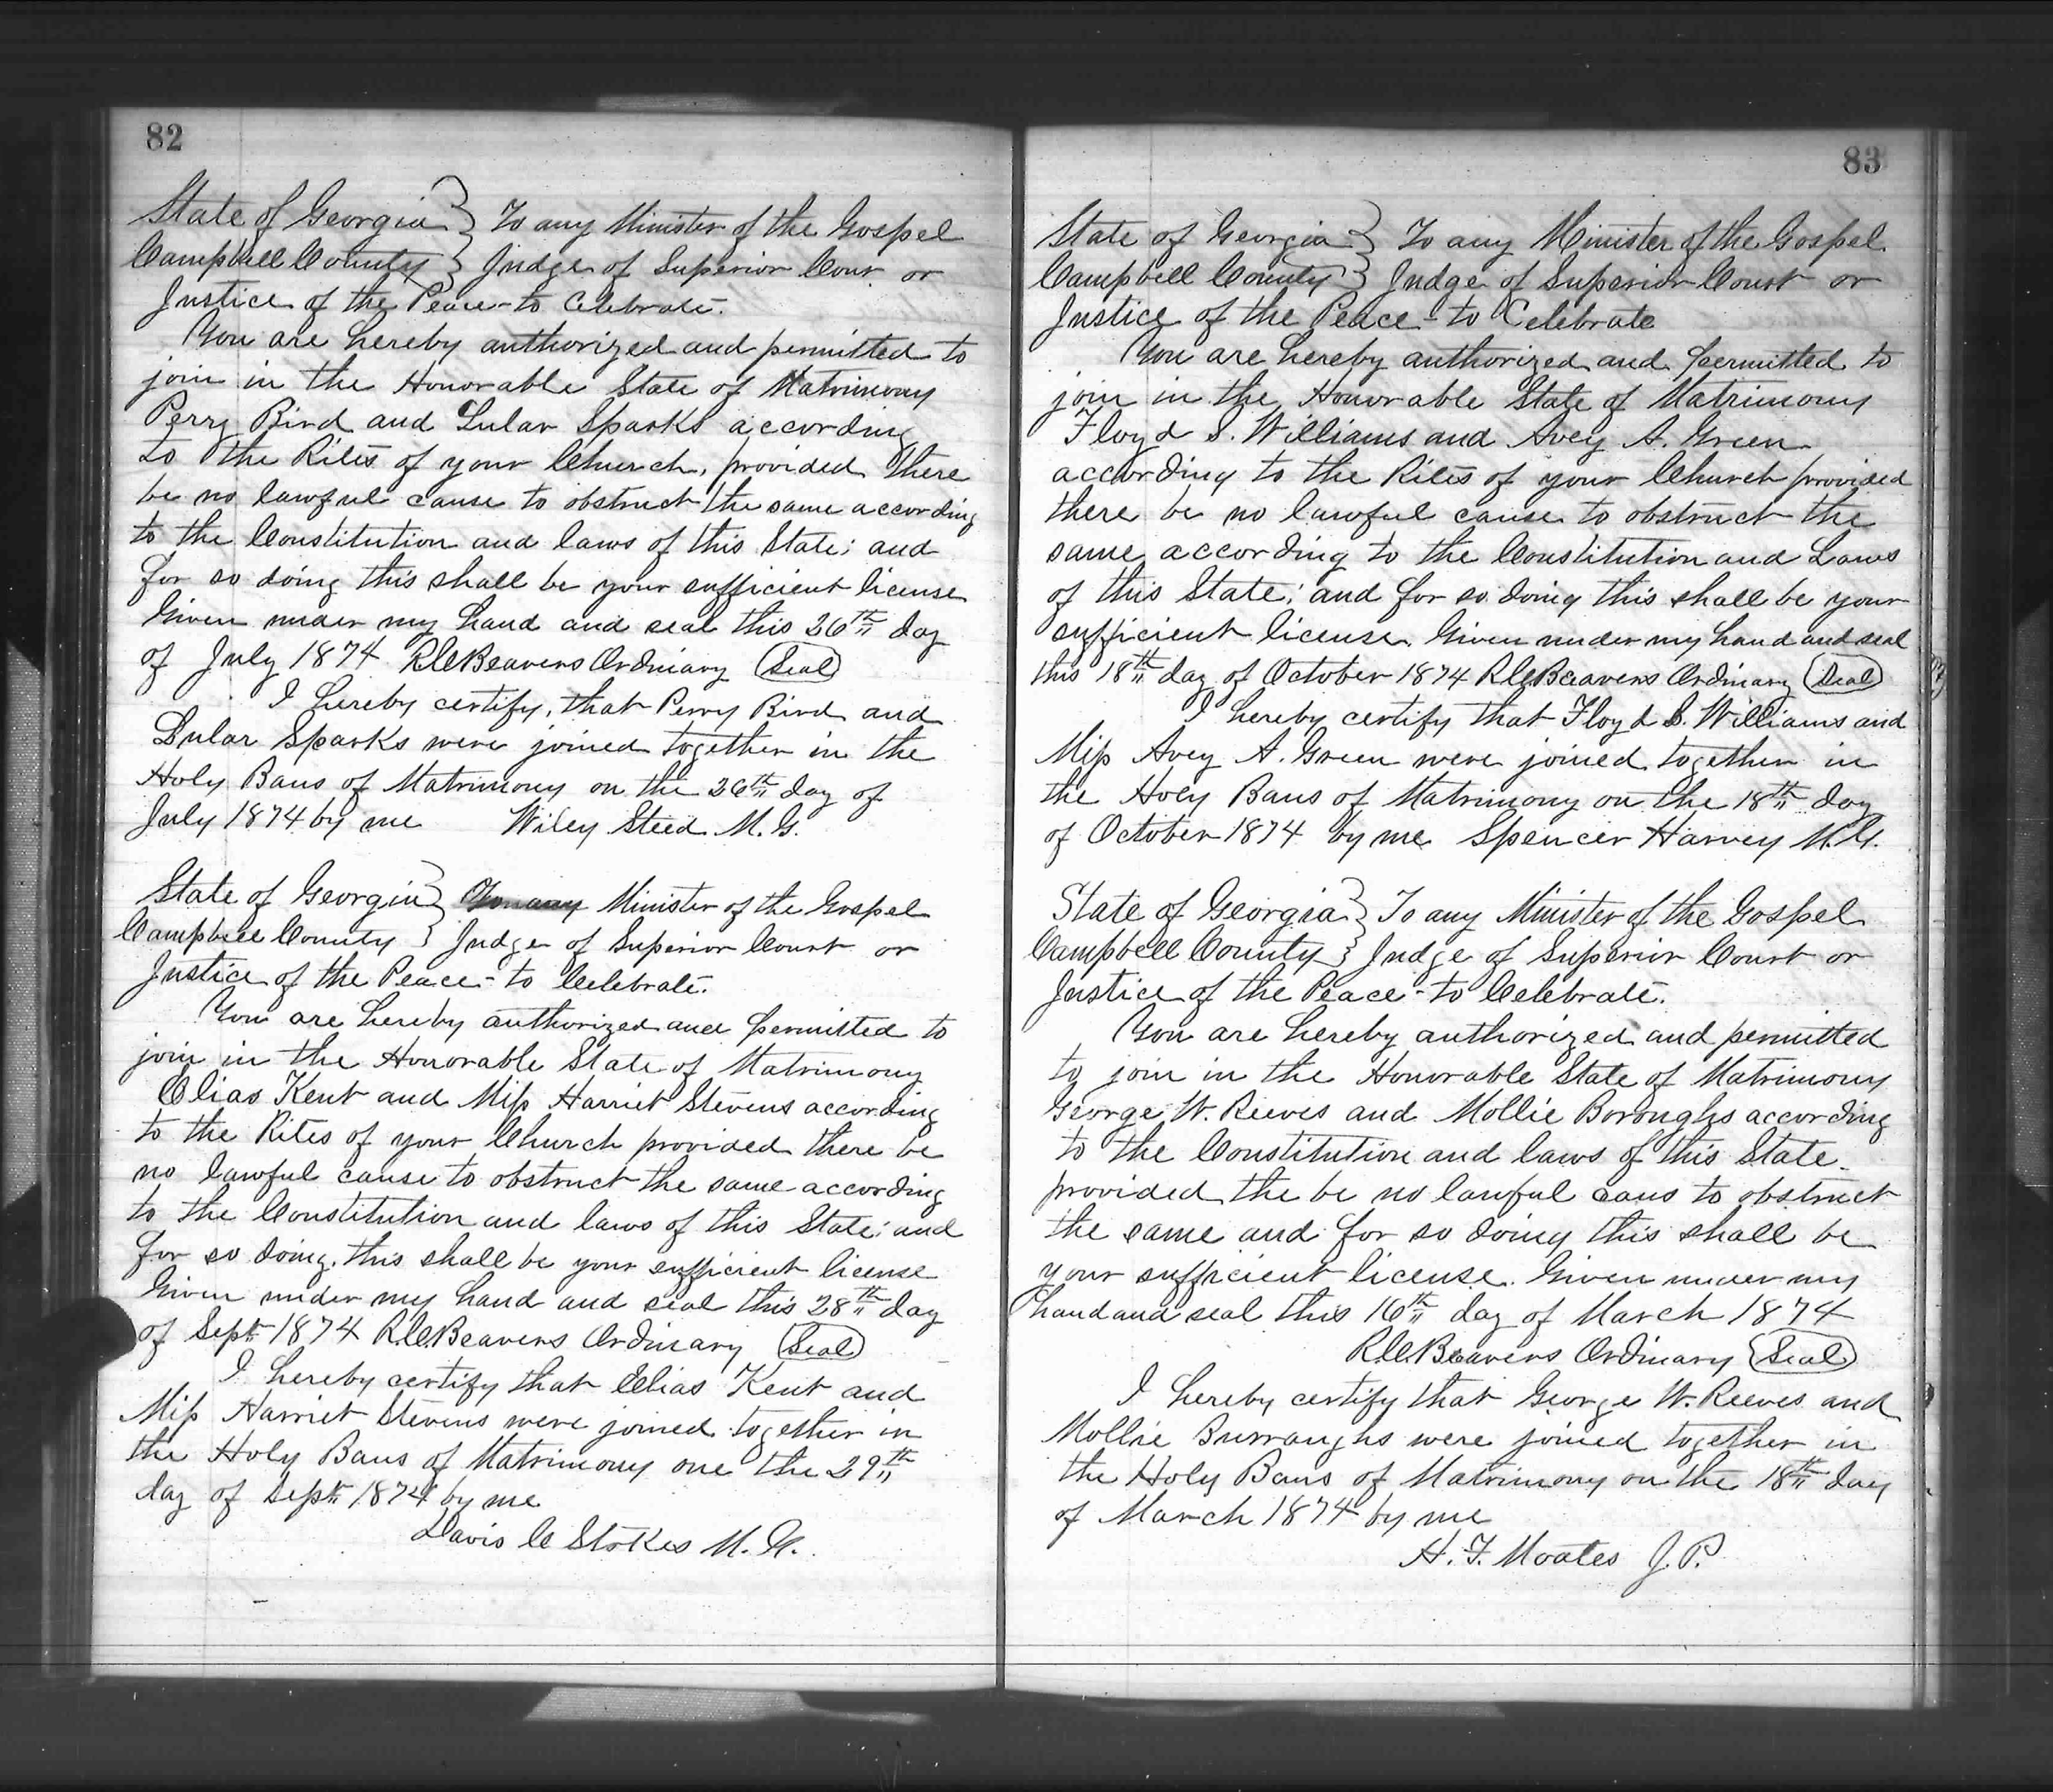 82
State of Georgia } To any Minister of the Gospel
Campbell County } Judge of Superior Cour or
Justice of the Peace - to Celebrate.
You are hereby authorized and permitted to
join in the Honorable State of Matrimony
Perry Bird and Lular Sparks according
to the Rites of your Church, provided there
be no lawful cause to obstruct the same according
to the Constitution and laws of this State; and
for so doing this shall be your sufficient license
Given under my hand and seal this 26th day
of July 1874 R.C. Beavers Ordinary (Seal)
I hereby certify, that Perry Bird and
Lular Sparks were joined together in the
Holy Bans of Matrimony on the 26th day of
July 1874 by me Wiley Steed M.G.
State of Georgia } Minister of the Gospel
Campbell County } Judge of Superior Court or
Justice of the Peace - to Celebrate.
You are hereby authorized and permitted to
join in the Honorable State of Matrimony
Elias Kent and Miss Harriet Stevens according
to the Rites of your Church provided there be
no lawful cause to obstruct the same according
to the Constitution and laws of this State; and
for so doing, this shall be your sufficient license
Given under my hand and seal this 28th day
of Sept 1874 R.C. Beavers Ordinary (Seal)
I hereby certify that Elias Kent and
Miss Harriet Stevens were joined together in
the Holy Bans of Matrimony one the 29th
day of Sept 1874 by me
Davis C Stokes M.G.
83
State of Georgia } To any Minister of the Gospel
Campbell County } Judge of Superior Court or
Justice of the Peace - to Celebrate
You are hereby authorized and permitted to
join in the Honorable State of Matrimony
Floyd S. Williams and Avey A. Green
according to the Rites of your Church provided
there be no lawful cause to obstruct the
same according to the Constitution and Laws
of this State; and for so doing this shall be your
sufficient license. Given under my hand and seal
this 18th day of October 1874 R.C. Beavers Ordinary (Seal)
I hereby certify that Floyd S. Williams and
Miss Avey A. Green were joined together in
the Holy Bans of Matrimony on the 18th day
of October 1874 by me Spencer Harvey M.G.
State of Georgia } To any Minister of the Gospel
Campbell County } Judge of Superior Court or
Justice of the Peace - to Celebrate.
You are hereby authorized and permitted
to join in the Honorable State of Matrimony
George W. Reeves and Mollie Boroughs according
to the Constitution and laws of this State
provided the be no lawful caus to obstruct
the same and for so doing this shall be
your sufficient license. Given under my
hand and seal this 16th day of March 1874
R.C. Beavers Ordinary (Seal)
I hereby certify that George W. Reeves and
Mollie Burraughs were joined together in
the Holy Bans of Matrimony on the 18th day
of March 1874 by me
H. F. Moates J.P.